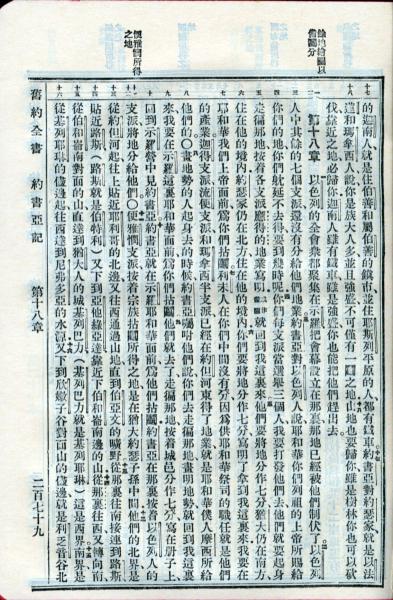 餘地拈鬮以
備圖分
便雅憫所得
之地
的迦南人就是住伯善和屬伯善的鎮市並住耶斯列平原的人都有鐵車約書亞對約瑟家就是以法
蓮和瑪拿西人說你是族大人多並且強盛不可僅有一鬮之地山地也要歸你雖是樹林你也可以砍
伐靠近之地必歸你迦南人雖有鐵車雖是強盛你也能把他們趕出去
第十八章 以色列的全會衆都聚集在示羅把會幕設立在那裏那地已經被他們制伏了以色列
人中其餘的七個支派還沒有分給他們地業約書亞對以色列人說耶和華你們列祖的上帝所賜給
你們的地你們躭延不去得要到幾時呢你們每支派當選舉三個人我要打發他們去他們就要起身
走徧那地按着各支派應得的地業寫明就回到我這裏來他們要將地分作七分猶大仍在南方
住在他的境內約瑟家仍在北方住在他的境內你們要將地分作七分寫明了拿到我這裏來我要在
耶和華我們上帝面前爲你們拈鬮利未人在你們中間沒有分因爲供耶和華祭司的職任就是他們
的產業迦得支派流便支派和瑪拿西半支派已經在約但河東得了地業就是耶和華僕人摩西所給
他們的〇畫地勢的人起身去的時候約書亞囑咐他們說你們去走徧那地畫明地勢就回到我這裏
來我要在示羅這裏耶和華面前爲你們拈鬮他們就去了走徧那地按着城邑分作七分寫在册子上
回到示羅營中見約書亞約書亞就在示羅耶和華面前爲他們拈鬮約書亞在那裏按着以色列人的
支派將地分給他們〇便雅憫支派按着宗族拈鬮所得之地是在猶大約瑟子孫中間他們的北界是
從約但河起往上貼近耶利哥的北邊又往西通過山地直到伯亞文的曠野從那裏往南接連到路斯
貼近路斯(路斯就是伯特利)又下到亞他綠亞達靠近下伯和崙南邊的山從那裏往西又轉向南
從伯和崙南對面的山直達到猶大人的城基列巴力(基列巴力就是基列耶琳)這是西界南界是
從基列耶琳的儘邊起往西達到尼弗多亞的水源又下到欣嫩子谷對面山的儘邊就是利乏音谷北
舊約全書 約書亞記 第十八章 二百七十九